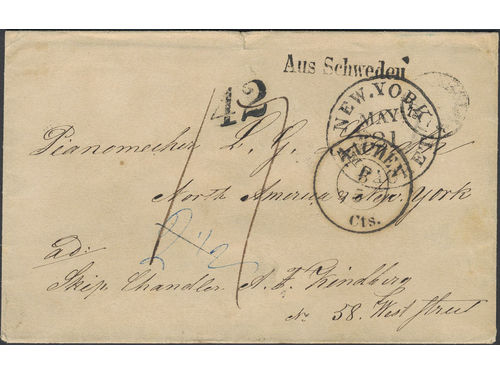 Aus Schweden
42
NEW.YORK
MAY
21
AACHEN
Cts.
Pianomecker L. G.
North America New York
ad:
Skip Chandler A. F. Lindberg
No 58. West Street